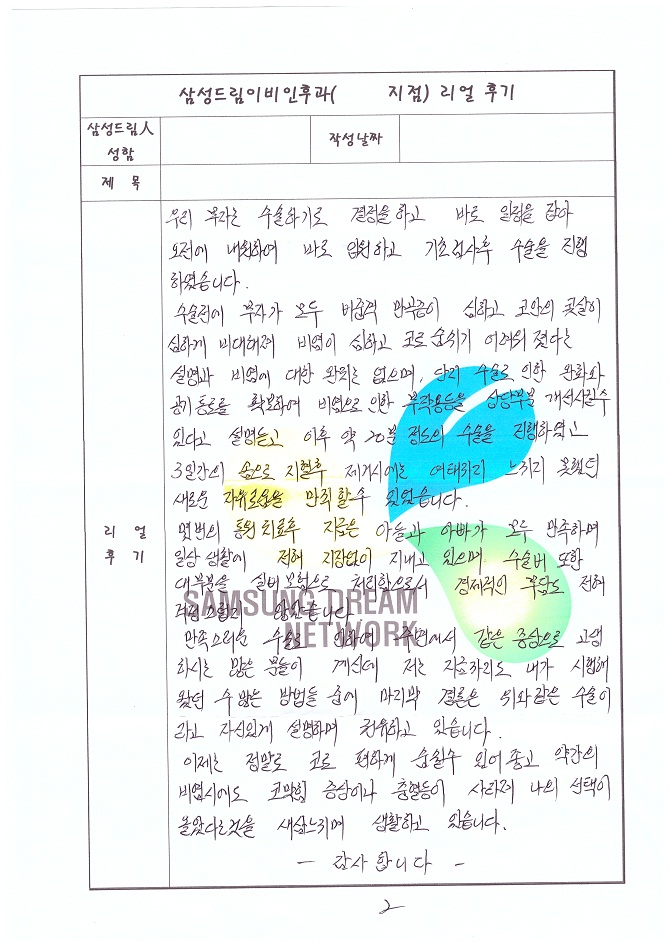 삼성드림이비인후과(      지점) 리얼 후기
삼성드림人
성함
작성날짜
제 목
우리 부자는 수술하기로 결정을 하고 바로 일정을 잡아
오전에 내원하여 바로 입원하고 기초검사후 수술을 진행
하였습니다.
수술전에 부자가 모두 비중격 만곡증이 심하고 코안의 콧살이
심하게 비대해져 비염이 심하고 코로 숨쉬기 어려워 졌다는
설명과 비염에 대한 완치는 없으며, 단지 수술로 인한 완화와
공기통로를 확보하여 비염으로 인한 부작용등을 상당부분 개선시킬수
있다고 설명듣고 이후 약 20분 정도의 수술을 진행하였고
3일간의 솜으로 지혈후 제거시에는 여태까지 느끼지 못했던
새로운 자유로움을 만끽할수 있었습니다.
리 얼
후 기
몇번의 통원치료후 지금은 아들과 아빠가 모두 만족하며
일상생활에 전혀 지장없이 지내고 있으며 수술비 또한
대부분을 실비보험으로 처리함으로서 경제적인 부담도 전혀
않았습니다
SAMSUNG DREAM
NETWORK
만족스러운 수술로 인하여 주변에서 같은 증상으로 고생
하시는 많은 분들이 계신데 저는 자료하리도 내가 시행해
왔던 수 많은 방법들 중에 마지막 결론은 위와같은 수술이
라고 자신있게 설명하며 권유하고 있습니다.
이제는 정말로 코로 편하게 숨쉴수 있어 좋고 약간의
비염시에도 코막힘 증상이나 충혈등이 사라져 나의 선택이
옳았다는것을 새삼느끼며 생활하고 있습니다.
- 감사합니다 -
2